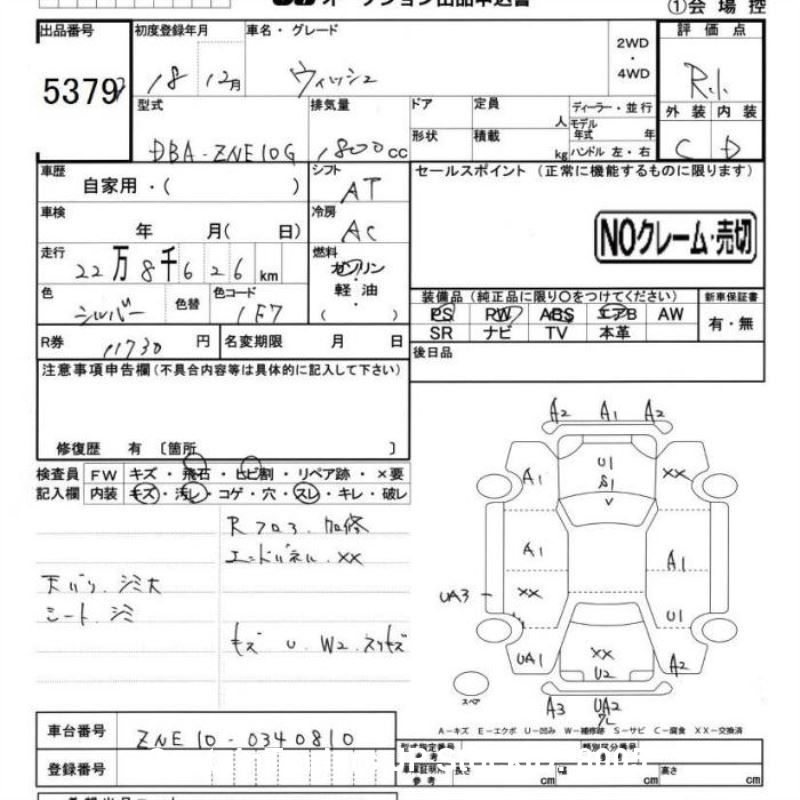 オークション出品申込書
①会場控
出品番号 初度登録年月 車名・グレード 2WD・4WD 評価点
5379 18 12月 ウィッシュ R.1.
型式 排気量 ドア 定員 人 ディーラー・並行 外装 内装
DBA-ZNE10G 1800cc 形状 積載 kg モデル年式 年 C D
ハンドル 左・右
車歴 自家用・( ) シフト AT セールスポイント (正常に機能するものに限ります)
車検 年 月( 日) 冷房 AC
NOクレーム・売切
走行 22万8千626km 燃料 ガソリン・軽油 ( )
色 シルバー 色替 色コード 1F7
装備品(純正品に限り○をつけてください) 新車保証書
PS PW ABS エアB AW 有・無
SR ナビ TV 本革
R券 11730円 名変期限 月 日 後日品
注意事項申告欄(不具合内容等は具体的に記入して下さい)
修復歴 有 〔箇所 〕
検査員 FW キズ・飛石・ヒビ割・リペア跡・×要
記入欄 内装 キズ・汚レ・コゲ・穴・スレ・キレ・破レ
Rフロア 加修
エンドパネル XX
天バリ シミ大
シート シミ
キズ U W2 スリキズ
A2 A1 A2
U1
A1 S1 XX
V
A1 A1
UA3 XX
U1
UA1 XX A2
U2
スペア A3 UA2
A-キズ E-エクボ U-凹み W-補修跡 S-サビ C-腐食 XX-交換済
車台番号 ZNE10-0340810
型式指定番号 類別区分番号
参考
登録番号
長さ cm 幅 cm 高さ cm
参考